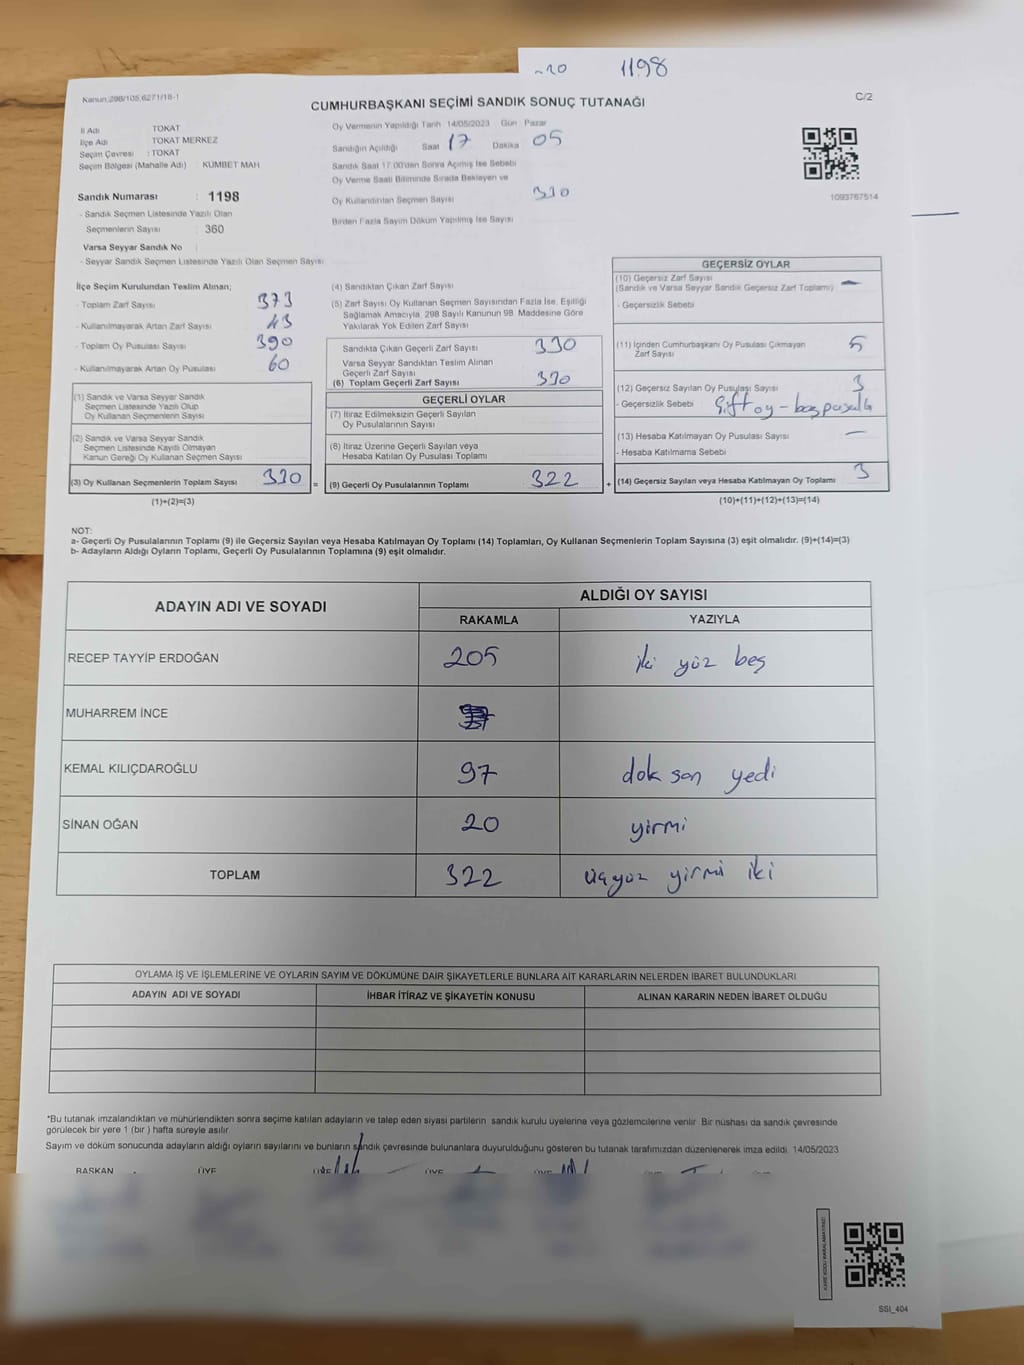 1198
Kanun:298/105,6271/18-1
CUMHURBAŞKANI SEÇİMİ SANDIK SONUÇ TUTANAĞI
C/2
İl Adı TOKAT
İlçe Adı TOKAT MERKEZ
Seçim Çevresi : TOKAT
Seçim Bölgesi (Mahalle Adı) KÜMBET MAH.
Sandık Numarası : 1198
- Sandık Seçmen Listesinde Yazılı Olan
Seçmenlerin Sayısı : 360
Varsa Seyyar Sandık No
- Seyyar Sandık Seçmen Listesinde Yazılı Olan Seçmen Sayısı
Oy Vermenin Yapıldığı Tarih 14/05/2023 Gün : Pazar
Sandığın Açıldığı Saat 17 Dakika 05
Sandık Saat 17.00'den Sonra Açılmış İse Sebebi
Oy Verme Saati Bitiminde Sırada Bekleyen ve
Oy Kullandırılan Seçmen Sayısı 330
Birden Fazla Sayım Döküm Yapılmış İse Sayısı
1093767514
İlçe Seçim Kurulundan Teslim Alınan;
- Toplam Zarf Sayısı 373
- Kullanılmayarak Artan Zarf Sayısı 43
- Toplam Oy Pusulası Sayısı 390
- Kullanılmayarak Artan Oy Pusulası 60
(1) Sandık ve Varsa Seyyar Sandık
Seçmen Listesinde Yazılı Olup
Oy Kullanan Seçmenlerin Sayısı
(2) Sandık ve Varsa Seyyar Sandık
Seçmen Listesinde Kayıtlı Olmayan
Kanun Gereği Oy Kullanan Seçmen Sayısı
(3) Oy Kullanan Seçmenlerin Toplam Sayısı 330
(1)+(2)=(3)
(4) Sandıktan Çıkan Zarf Sayısı
(5) Zarf Sayısı Oy Kullanan Seçmen Sayısından Fazla İse, Eşitliği
Sağlamak Amacıyla, 298 Sayılı Kanunun 98. Maddesine Göre
Yakılarak Yok Edilen Zarf Sayısı
Sandıkta Çıkan Geçerli Zarf Sayısı 330
Varsa Seyyar Sandıktan Teslim Alınan
Geçerli Zarf Sayısı
(6) Toplam Geçerli Zarf Sayısı 330
GEÇERLİ OYLAR
(7) İtiraz Edilmeksizin Geçerli Sayılan
Oy Pusulalarının Sayısı
(8) İtiraz Üzerine Geçerli Sayılan veya
Hesaba Katılan Oy Pusulası Toplamı
= (9) Geçerli Oy Pusulalarının Toplamı 322
GEÇERSİZ OYLAR
(10) Geçersiz Zarf Sayısı
(Sandık ve Varsa Seyyar Sandık Geçersiz Zarf Toplamı) —
- Geçersizlik Sebebi
(11) İçinden Cumhurbaşkanı Oy Pusulası Çıkmayan 5
Zarf Sayısı
(12) Geçersiz Sayılan Oy Pusulası Sayısı 3
- Geçersizlik Sebebi Çift oy - boş pusula
(13) Hesaba Katılmayan Oy Pusulası Sayısı —
- Hesaba Katılmama Sebebi
+ (14) Geçersiz Sayılan veya Hesaba Katılmayan Oy Toplamı 3
(10)+(11)+(12)+(13)=(14)
NOT:
a- Geçerli Oy Pusulalarının Toplamı (9) ile Geçersiz Sayılan veya Hesaba Katılmayan Oy Toplamı (14) Toplamları, Oy Kullanan Seçmenlerin Toplam Sayısına (3) eşit olmalıdır. (9)+(14)=(3)
b- Adayların Aldığı Oyların Toplamı, Geçerli Oy Pusulalarının Toplamına (9) eşit olmalıdır.
ADAYIN ADI VE SOYADI
ALDIĞI OY SAYISI
RAKAMLA YAZIYLA
RECEP TAYYİP ERDOĞAN 205 iki yüz beş
MUHARREM İNCE
KEMAL KILIÇDAROĞLU 97 dok san yedi
SİNAN OĞAN 20 yirmi
TOPLAM 322 üçyüz yirmi iki
OYLAMA İŞ VE İŞLEMLERİNE VE OYLARIN SAYIM VE DÖKÜMÜNE DAİR ŞİKAYETLERLE BUNLARA AİT KARARLARIN NELERDEN İBARET BULUNDUKLARI
ADAYIN ADI VE SOYADI İHBAR İTİRAZ VE ŞİKAYETİN KONUSU ALINAN KARARIN NEDEN İBARET OLDUĞU
*Bu tutanak imzalandıktan ve mühürlendikten sonra seçime katılan adayların ve talep eden siyasi partilerin sandık kurulu üyelerine veya gözlemcilerine verilir. Bir nüshası da sandık çevresinde
görülecek bir yere 1 (bir ) hafta süreyle asılır.
Sayım ve döküm sonucunda adayların aldığı oyların sayılarını ve bunların sandık çevresinde bulunanlara duyurulduğunu gösteren bu tutanak tarafımızdan düzenlenerek imza edildi. 14/05/2023
BAŞKAN ÜYE ÜYE ÜYE ÜYE
KARE KODU KARALAMAYINIZ!
SSI_404